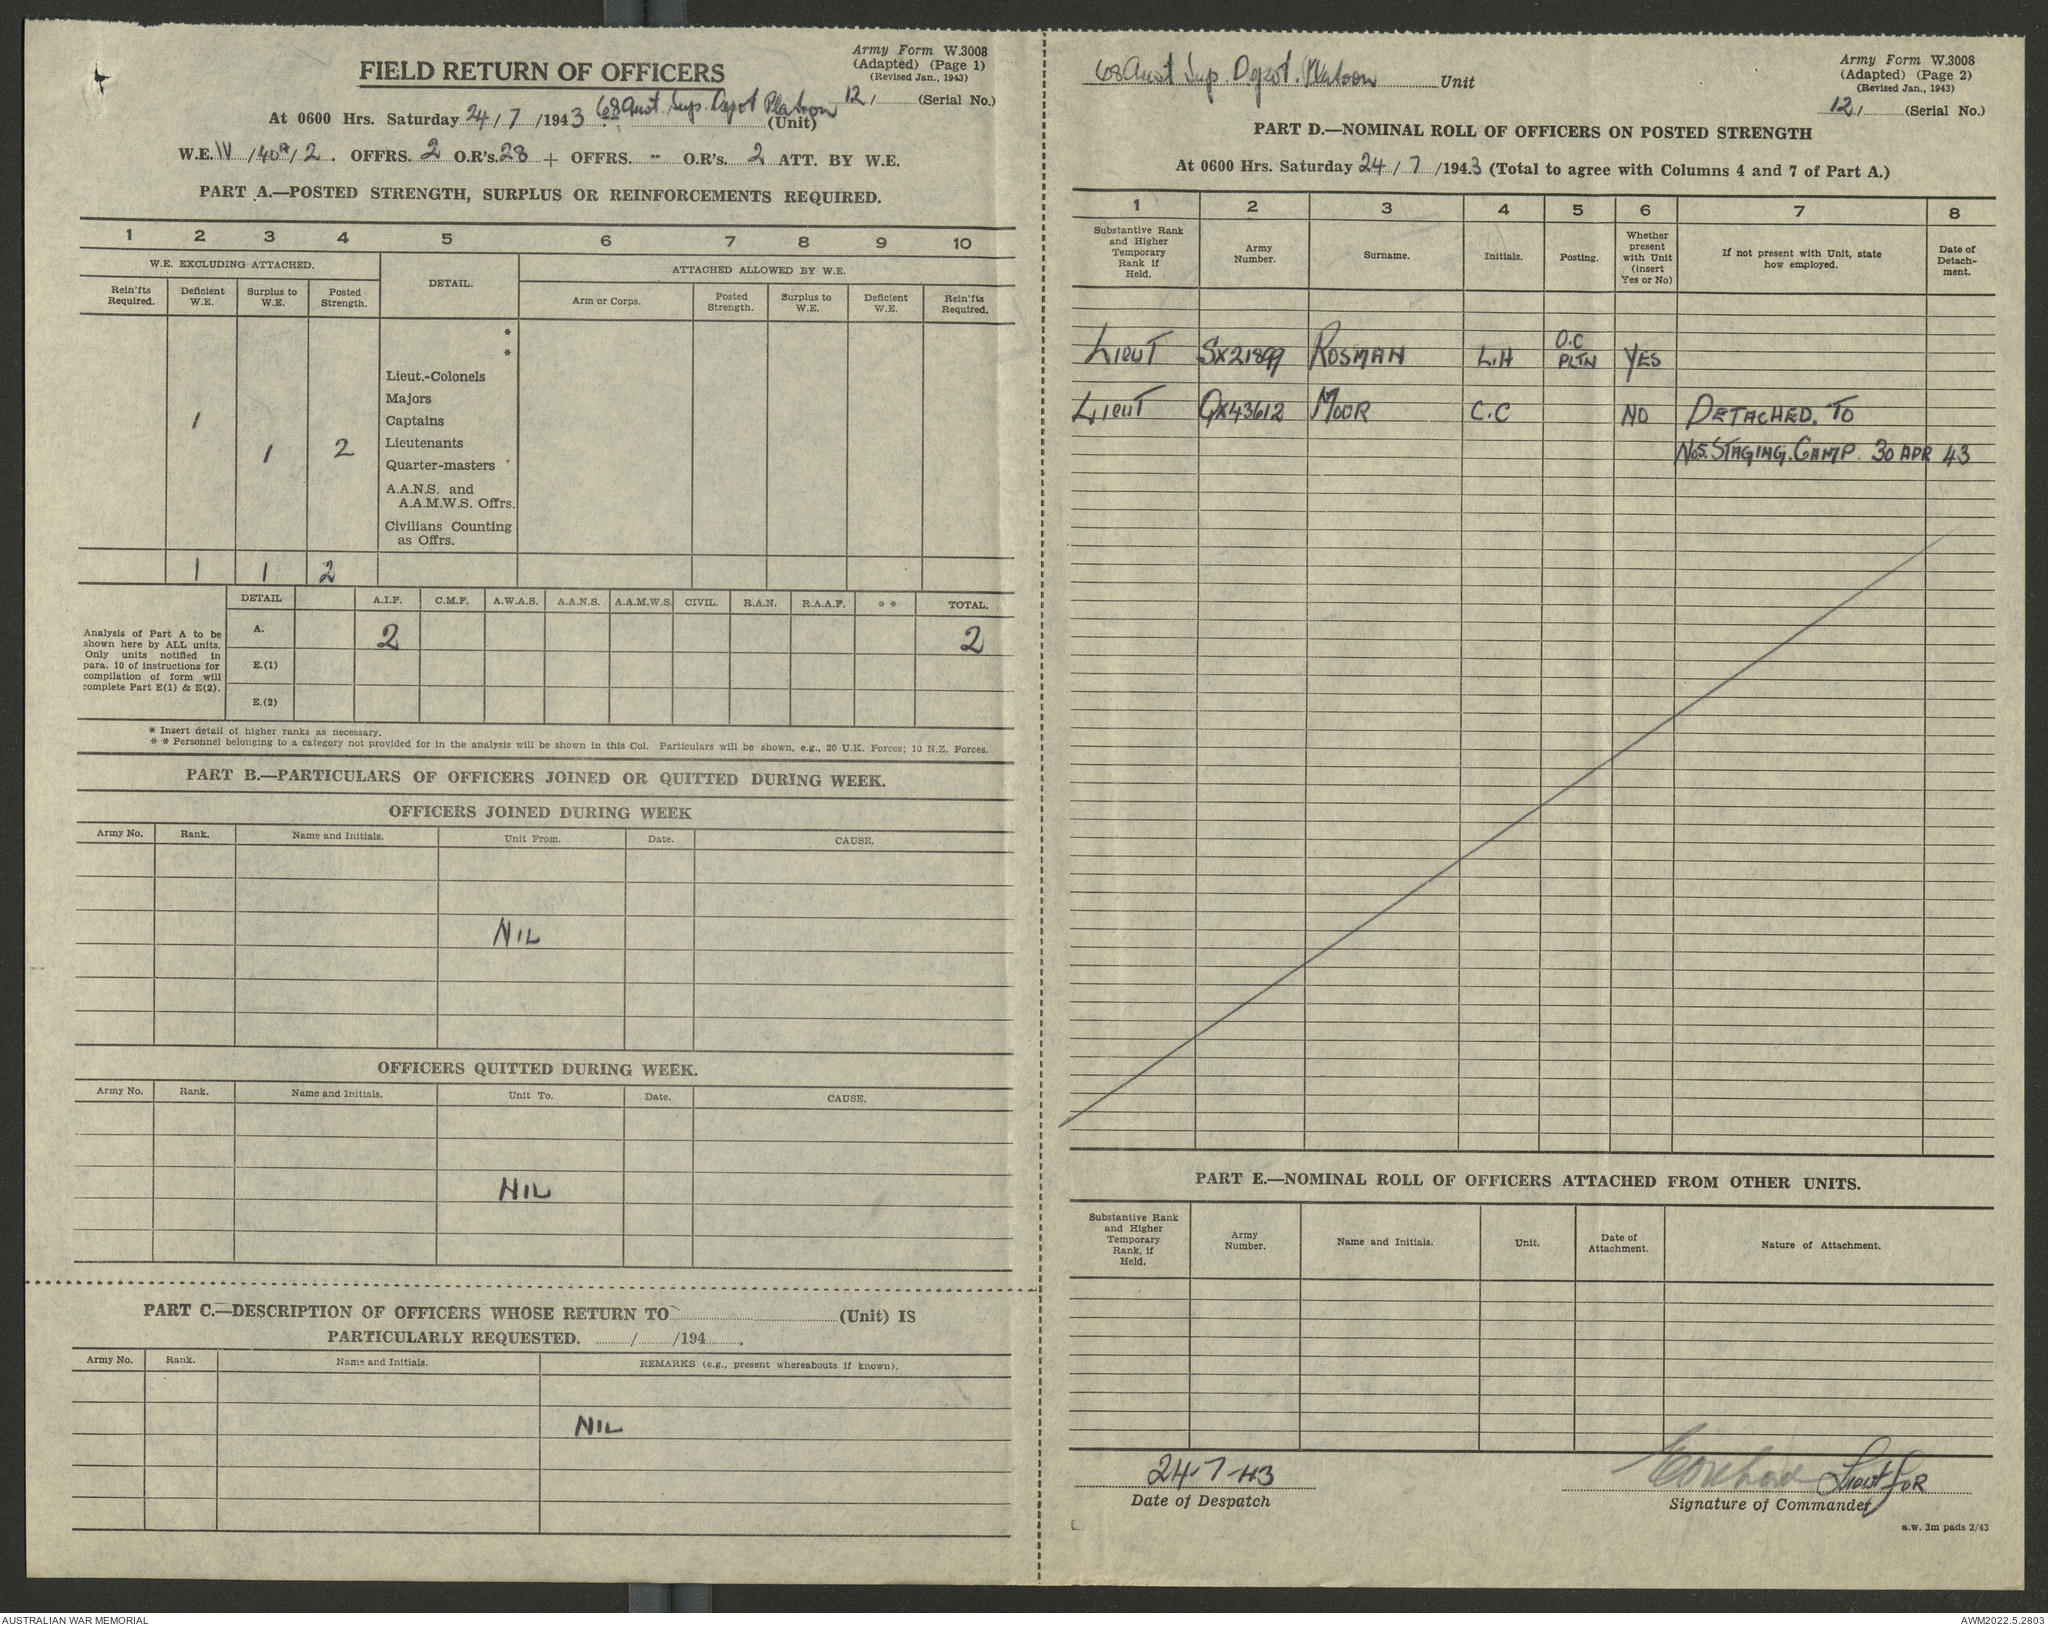 Army Form W.3008
(Adapted) (Page 1)
(Revised Jan., 1943)
FIELD RETURN OF OFFICERS
12/ (Serial No.)
At 0600 Hrs. Saturday 24/7/1943 68 Aust. Sup. Depot Platoon (Unit)
W.E. IV/40A/2. OFFRS. 2 O.R's. 28 + OFFRS. - O.R's. 2 ATT. BY W.E.
PART A.—POSTED STRENGTH, SURPLUS OR REINFORCEMENTS REQUIRED.
1 2 3 4 5 6 7 8 9 10
W.E. EXCLUDING ATTACHED. DETAIL. ATTACHED ALLOWED BY W.E.
Rein'fts Required. Deficient W.E. Surplus to W.E. Posted Strength. Arm or Corps. Posted Strength. Surplus to W.E. Deficient W.E. Rein'fts Required.
*
*
Lieut.-Colonels
Majors
1 Captains
1 2 Lieutenants
Quarter-masters
A.A.N.S. and
A.A.M.W.S. Offrs.
Civilians Counting
as Offrs.
1 1 2
DETAIL A.I.F. C.M.F. A.W.A.S. A.A.N.S. A.A.M.W.S. CIVIL. R.A.N. R.A.A.F. * * TOTAL.
Analysis of Part A to be
shown here by ALL units.
Only units notified in
para. 10 of instructions for
compilation of form will
complete Part E(1) & E(2).
A. 2 2
E.(1)
E.(2)
* Insert detail of higher ranks as necessary.
* * Personnel belonging to a category not provided for in the analysis will be shown in this Col. Particulars will be shown, e.g., 20 U.K. Forces; 10 N.Z. Forces.
PART B.—PARTICULARS OF OFFICERS JOINED OR QUITTED DURING WEEK.
OFFICERS JOINED DURING WEEK
Army No. Rank. Name and Initials. Unit From. Date. CAUSE.
NIL
OFFICERS QUITTED DURING WEEK.
Army No. Rank. Name and Initials. Unit To. Date. CAUSE.
NIL
PART C.—DESCRIPTION OF OFFICERS WHOSE RETURN TO (Unit) IS
PARTICULARLY REQUESTED. / /194 .
Army No. Rank. Name and Initials. REMARKS (e.g., present whereabouts if known).
NIL
68 Aust Sup. Depot. Platoon Unit
Army Form W.3008
(Adapted) (Page 2)
(Revised Jan., 1943)
12/ (Serial No.)
PART D.—NOMINAL ROLL OF OFFICERS ON POSTED STRENGTH
At 0600 Hrs. Saturday 24/7/1943 (Total to agree with Columns 4 and 7 of Part A.)
1 2 3 4 5 6 7 8
Substantive Rank and Higher Temporary Rank if Held. Army Number. Surname. Initials. Posting. Whether present with Unit (insert Yes or No) If not present with Unit, state how employed. Date of Detach-ment.
LIEUT SX21899 ROSMAN L.H O.C PLTN YES
LIEUT QX43612 MOOR C.C NO DETACHED. TO
No5. STAGING. CAMP. 30 APR 43
PART E.—NOMINAL ROLL OF OFFICERS ATTACHED FROM OTHER UNITS.
Substantive Rank and Higher Temporary Rank, if Held. Army Number. Name and Initials. Unit. Date of Attachment. Nature of Attachment.
24-7-43
Date of Despatch
Lieut for
Signature of Commander
a.w. 3m pads 2/43
AUSTRALIAN WAR MEMORIAL
AWM2022.5.2803